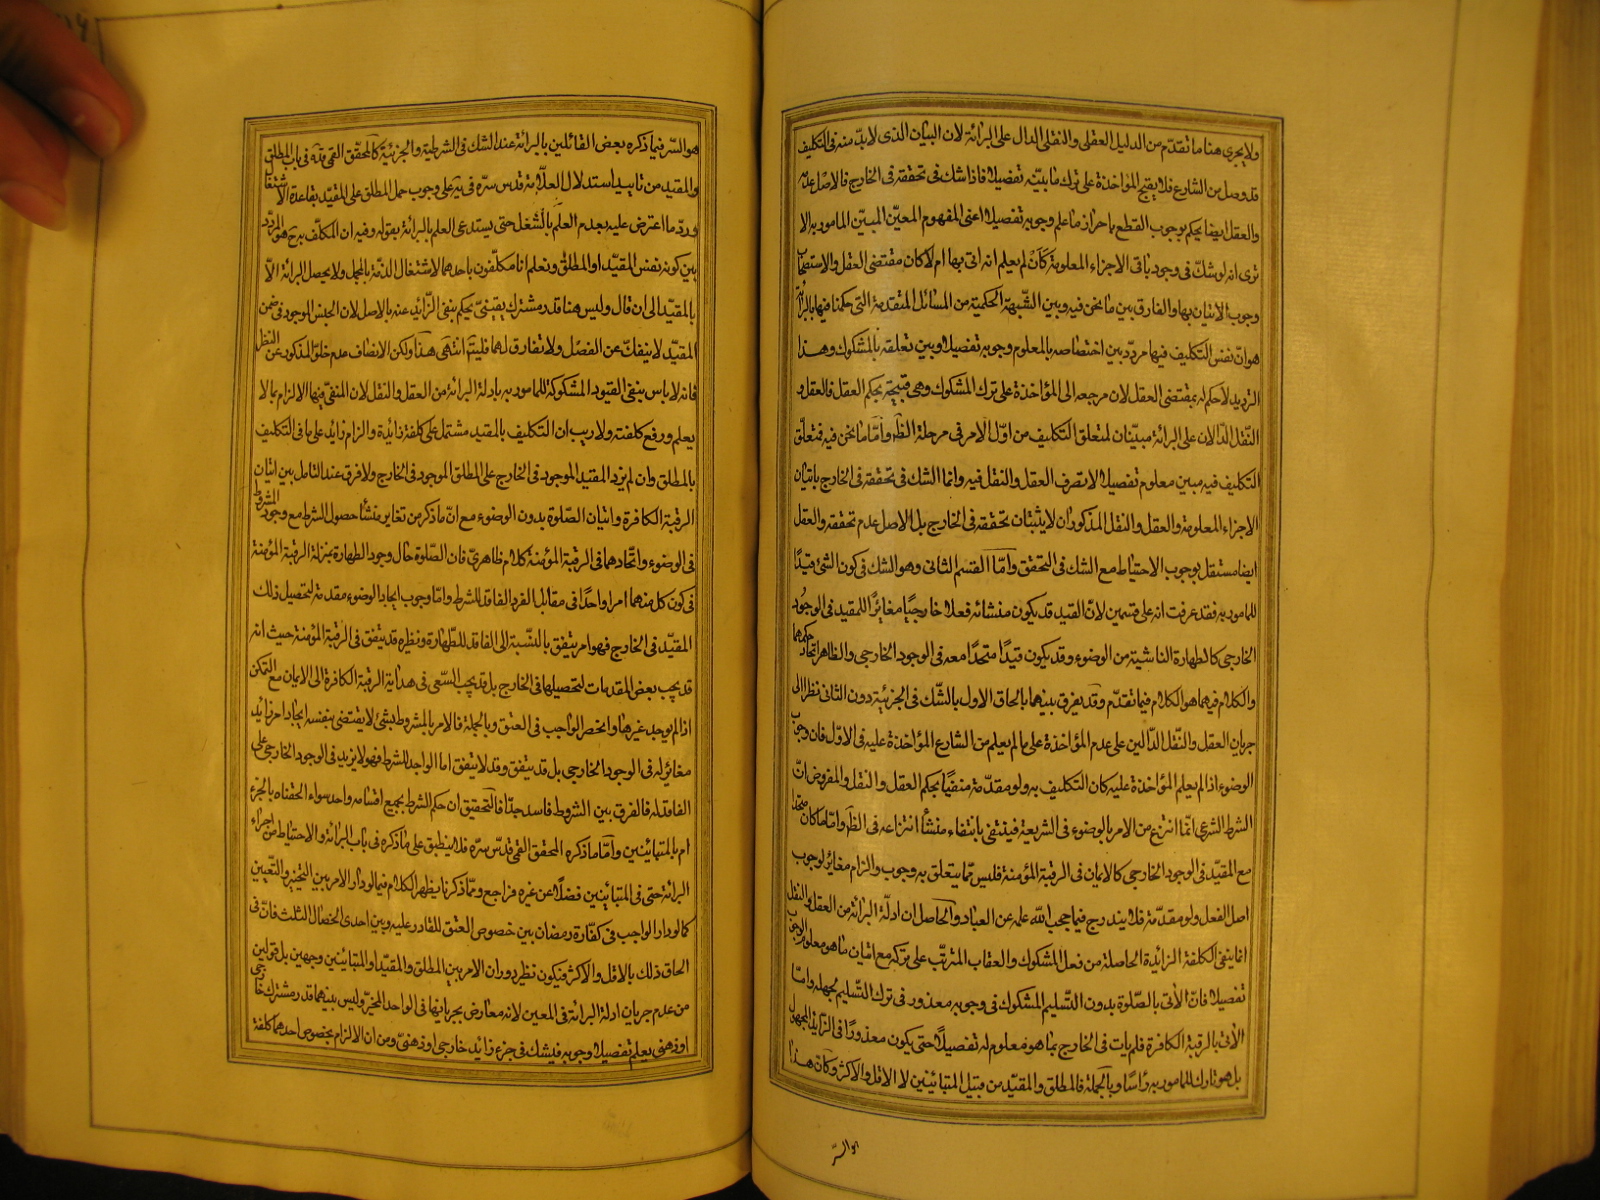 ولا يجرى هنا ما تقدّم من الدليل العقلى والنقلى الدال على البرائة لان البيان الذى لا بدّ منه فى التكليف
قد وصل من الشارع فلا يقبح المؤاخذة على ترك ما بيّنه تفصيلا فاذا شك فى تحققه فى الخارج فالاصل عدمه
والعقل ايضا يحكم بوجوب القطع باحراز ما علم وجوبه تفصيلا اعنى المفهوم المعيّن المبيّن المامور به الا
ترى انه لو شكّ فى وجود باقى الاجزاء المعلومة كان لم يعلم انه اتى بها ام لا كان مقتضى العقل والاستصحاب
وجوب الاتيان بها والفارق بين ما نحن فيه وبين الشّبهة الحكمية من المسائل المتقدمة التى حكمنا فيها بالبرائة
هو انّ نفس التكليف فيها مردّد بين اختصاصه بالمعلوم وجوبه تفصيلا وبين تعلقه بالمشكوك وهذا
الترديد لا حكم له بمقتضى العقل لان مرجعه الى المؤاخذة على ترك المشكوك وهى قبيحة بحكم العقل فالعقل و
النّقل الدّالان على البرائة مبيّنان لمتعلق التكليف من اوّل الامر فى مرحلة الظ وامّا ما نحن فيه فمتعلّق
التكليف فيه مبين معلوم تفصيلا لا تصرف للعقل والنقل فيه وانما الشك فى تحققه فى الخارج باتيان
الاجزاء المعلومة والعقل والنقل المذكوران لا يثبتان تحققه فى الخارج بل الاصل عدم تحققه والعقل
ايضا مستقل بوجوب الاحتياط مع الشك فى التحقق وامّا القسم الثانى وهو الشك فى كون الشئ قيدًا
للمامور به فقد عرفت انه على قسمين لانّ القيد قد يكون منشائه فعلا خارجيًا مغائرًا للمقيد فى الوجود
الخارجى كالطهارة الناشية من الوضوء وقد يكون قيدًا متحدًا معه فى الوجود الخارجى والظاهر اتحاد حكمهما
والكلام فيهما هو الكلام فيما تقدّم وقد يفرق بينهما بالحاق الاول بالشّك فى الجزئية دون الثانى نظرا الى
جريان العقل والنّقل الدّالين على عدم المؤاخذة على ما لم يعلم من الشارع المؤاخذة عليه فى الاوّل فان وجوب
الوضوء اذا لم يعلم المؤاخذة عليه كان التكليف به ولو مقدّمة منفيًا بحكم العقل والنقل والمفروض انّ
الشرط الشرعى انّما انتزع من الامر بالوضوء فى الشريعة فينتفى بانتفاء منشأ انتزاعه فى الظ وامّا ما كان متحدا
مع المقيّد فى الوجود الخارجى كالايمان فى الرقبة المؤمنة فليس ممّا يتعلق به وجوب والزام مغاير لوجوب
اصل الفعل ولو مقدّمة فلا يندرج فيما حجب الله علمه عن العباد والحاصل ان ادلّة البرائة من العقل والنقل
انما ينفى الكلفة الزائدة الحاصلة من فعل المشكوك والعقاب المترتّب على تركه مع اتيان ما هو معلوم الوجوب
تفصيلا فانّ الآتى بالصّلوة بدون التّسليم المشكوك فى وجوبه معذور فى ترك التّسليم لجهله وامّا
الآتى بالرقبة الكافرة فلم يات فى الخارج بما هو معلوم له تفصيلاً حتى يكون معذورًا فى الزايد المجهول
بل هو تارك للمامور به رأسًا وبالجملة فالمطلق والمقيّد من قبيل المتبائنين لا الاقل والاكثر وكان هذا
هو السّر
هو السّر فيما ذكره بعض القائلين بالبرائة عند الشك فى الشرطية والجزئية كالمحقّق القمى ره فى باب المطلق
والمقيد من تاييد استدلال العلّامة قدس سرّه فى يه على وجوب حمل المطلق على المقيّد بقاعدة الاشتغال
وردّ ما اعترض عليه بعدم العلم بالشّغل حتى يستدعى العلم بالبرائة بقوله وفيه ان المكلّف به ح هو المردّد
بين كونه نفس المقيّد او المطلق ونعلم انا مكلّفون باحدهما لاشتغال الذمّة بالمجمل ولا يحصل البرائة الّا
بالمقيّد الى ان قال وليس هنا قدر مشترك يقينىّ يحكم بنفى الزّائد عنه بالاصل لان الجنس الموجود فى ضمن
المقيّد لا ينفكّ عن الفصل ولا تفارق لهما فليتم انتهى هذا ولكن الانصاف عدم خلوّ المذكور عن النظر
فانه لا باس بنفى القيود المشكوكة للمامور به بادلة البرائة من العقل والنقل لان المنفىّ فيها الالزام بما لا
يعلم ورفع كلفته ولا ريب ان التكليف بالمقيد مشتمل على كلفة زائدة والزام زايد على ما فى التكليف
بالمطلق وان لم يزد المقيد الموجود فى الخارج على المطلق الموجود فى الخارج ولا فرق عند التامل بين اتيان
الرقبة الكافرة واتيان الصّلوة بدون الوضوء مع انّ ما ذكر من تغاير منشأ حصول الشرط مع وجود المشروط
فى الوضوء واتّحادهما فى الرقبة المؤمنة كلام ظاهرىّ فان الصّلوة حال وجود الطهارة بمنزلة الرقبة المؤمنة
فى كون كل منهما امرا واحدًا فى مقابل الفرد الفاقد للشرط وامّا وجوب ايجاد الوضوء مقدمة لتحصيل ذلك
المقيّد فى الخارج فهو امر يتفق بالنّسبة الى الفاقد للطّهارة ونظيره قد يتفق فى الرقبة المؤمنة حيث انه
قد يجب بعض المقدمات لتحصيلها فى الخارج بل قد يجب السّعى فى هداية الرقبة الكافرة الى الايمان مع التمكن
اذا لم يوجد غيرها وانحصر الواجب فى العتق وبالجملة فالامر بالمشروط بشئ لا يقتضى بنفسه ايجاد امر زائد
مغائر له فى الوجود الخارجى بل قد يتفق وقد لا يتفق اما الواجد للشرط فهو لا يزيد فى الوجود الخارجى على
الفاقد له فالفرق بين الشروط فاسد جدّا فالتحقيق ان حكم الشرط بجميع اقسامه واحد سواء الحقناه بالجزء
ام بالمتبائنين وامّا ما ذكره المحقق القمى قدّس سرّه فلا ينطبق على ما ذكره فى باب البرائة والاحتياط من اجراء
البرائة حتى فى المتبائنين فضلاً عن غيره فراجع وممّا ذكرنا يظهر الكلام فيما لو دار الامر بين التخيير والتّعيين
كما لو دار الواجب فى كفّارة رمضان بين خصوص العتق للقادر عليه وبين احدى الخصال الثلث فانّ فى
الحاق ذلك بالاقل والاكثر فيكون نظير دوران الامر بين المطلق والمقيّد او المتبائنين وجهين بل قولين
من عدم جريان ادلة البرائة فى المعين لانه معارض بجريانها فى الواحد المخيّر وليس بينهما قدر مشترك خارجى
او ذهنى يعلم تفصيلا وجوبه فيشك فى جزء زائد خارجى او ذهنىّ ومن ان الالزام بخصوص احدهما كلفة